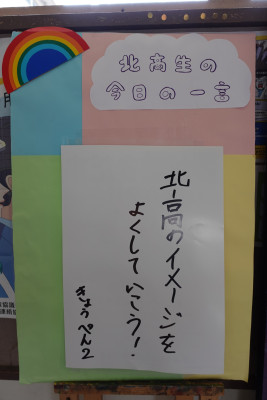 北高生の
今日の一言
北高のイメージを
よくしていこう!
きょうぺん2